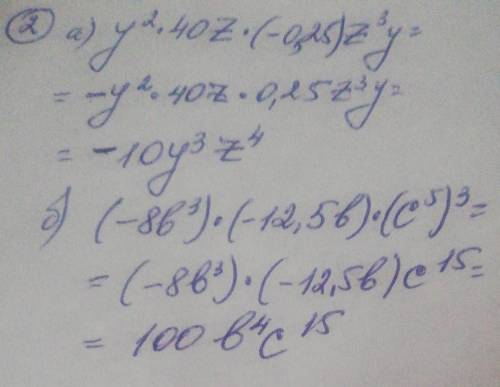 ② а) y²·40z·(-0,25)z³y=
= -y²·40z·0,25z³y=
= -10y³z⁴
б) (-8b³)·(-12,5b)·(c⁵)³=
= (-8b³)·(-12,5b)c¹⁵=
= 100b⁴c¹⁵